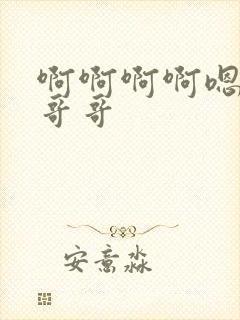 啊啊啊啊嗯
哥哥
安意淼